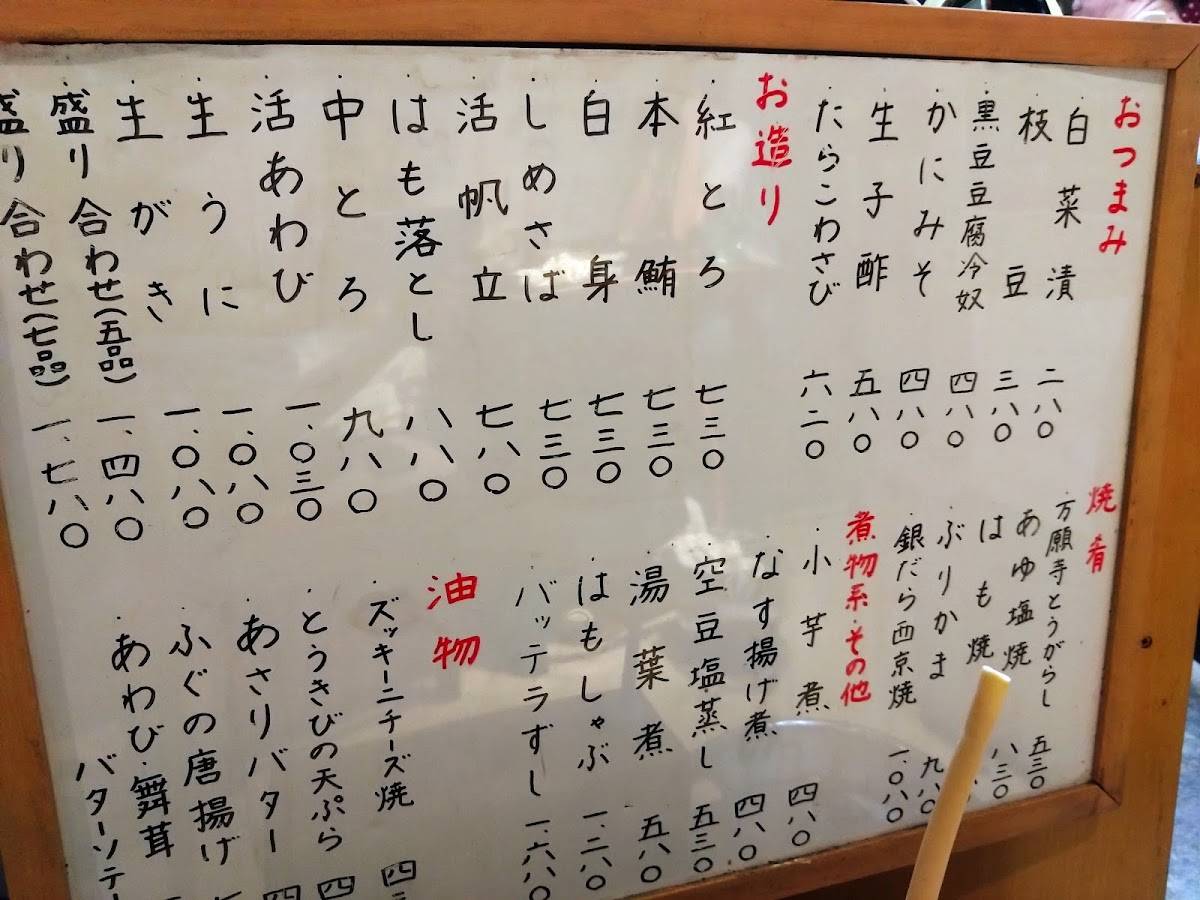 おつまみ
・白菜漬 二八〇
・枝豆 三八〇
・黒豆豆腐冷奴 四八〇
・かにみそ 四八〇
・生子酢 五八〇
・たらこわさび 六二〇
お造り
・紅とろ 七三〇
・本鮪 七三〇
・白身 七三〇
・しめさば 七三〇
・活帆立 七八〇
・はも落とし 八八〇
・中とろ 九八〇
・活あわび 一、〇三〇
・生うに 一、〇八〇
・生がき 一、〇八〇
・盛り合わせ(五品) 一、四八〇
盛り合わせ(七品) 一、七八〇
焼肴
・万願寺とうがらし 五三〇
・あゆ塩焼 八三〇
・はも焼
・ぶりかま 九八〇
・銀だら西京焼 一、〇八〇
煮物系・その他
・小芋煮 四八〇
・なす揚げ煮 四八〇
・空豆塩蒸し 五三〇
・湯葉煮 五八〇
・はもしゃぶ 一、二八〇
・バッテラずし 一、六八〇
油物
・ズッキーニチーズ焼 四
・とうきびの天ぷら 四
・あさりバター 四
・ふぐの唐揚げ
・あわび・舞茸
バターソテー